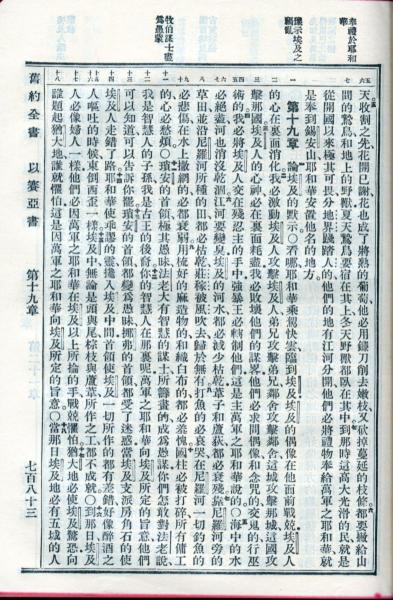 奉禮於耶和華
預示埃及之禍亂
牧伯謀士盡為愚蒙
天收割之先花開已謝花也成了將熟的葡萄他必用鐮刀削去嫩枝又砍掉蔓延的枝條都要撇給山
間的鷙鳥和地上的野獸夏天鷙鳥要宿在其上冬天野獸都臥在其中到那時這高大光滑的民就是
從開國以來極其可畏分地界踐踏人的他們的地有江河分開他們必將禮物奉給萬軍之耶和華就
是奉到錫安山耶和華安置他名的地方
第十九章 論埃及的默示○看哪耶和華乘駕快雲臨到埃及埃及的偶像在他面前戰兢埃及人
的心在裏面消化我必激動埃及人攻擊埃及人弟兄攻擊弟兄鄰舍攻擊鄰舍這城攻擊那城這國攻
擊那國埃及人的心神必在裏面耗盡我必敗壞他們的謀畧他們必求問偶像和念咒的交鬼的行巫
術的我必將埃及人交在殘忍主的手中強暴王必轄制他們這是主萬軍之耶和華說的○海中的水
必絕盡河也消沒乾涸江河要變臭埃及的河水都必減少枯乾葦子和蘆荻都必衰殘尼羅河旁的
草田並沿尼羅河所種的田都必枯乾莊稼被風吹去歸於無有打魚的必哀哭在尼羅河一切釣魚的
必悲傷在水上撒網的必都衰弱用梳好的麻造物的和織白布的都必羞愧國柱必被打碎所有傭工
的心必愁煩○瑣安的首領極其愚昧法老大有智慧的謀士所籌畫的成為愚謀你們怎敢對法老說
我是智慧人的子孫我是古王的後裔你的智慧人在那裏呢萬軍之耶和華向埃及所定的旨意他們
可以知道可以告訴你罷瑣安的首領都變為愚昧挪弗的首領都受了迷惑當埃及支派房角石的使
埃及人走錯了路耶和華使乖謬的靈攙入埃及中間首領使埃及一切所作的都有差錯好像醉酒之
人嘔吐的時候東倒西歪一樣埃及中無論是頭與尾棕枝與蘆葦所作之工都不成就○到那日埃及
人必像婦人一樣他們必因萬軍之耶和華在埃及以上所掄的手戰兢懼怕猶大地必使埃及驚恐向
誰題起猶大地誰就懼怕這是因萬軍之耶和華向埃及所定的旨意○當那日埃及地必有五城的人
舊約全書 以賽亞書 第十九章 七百八十三